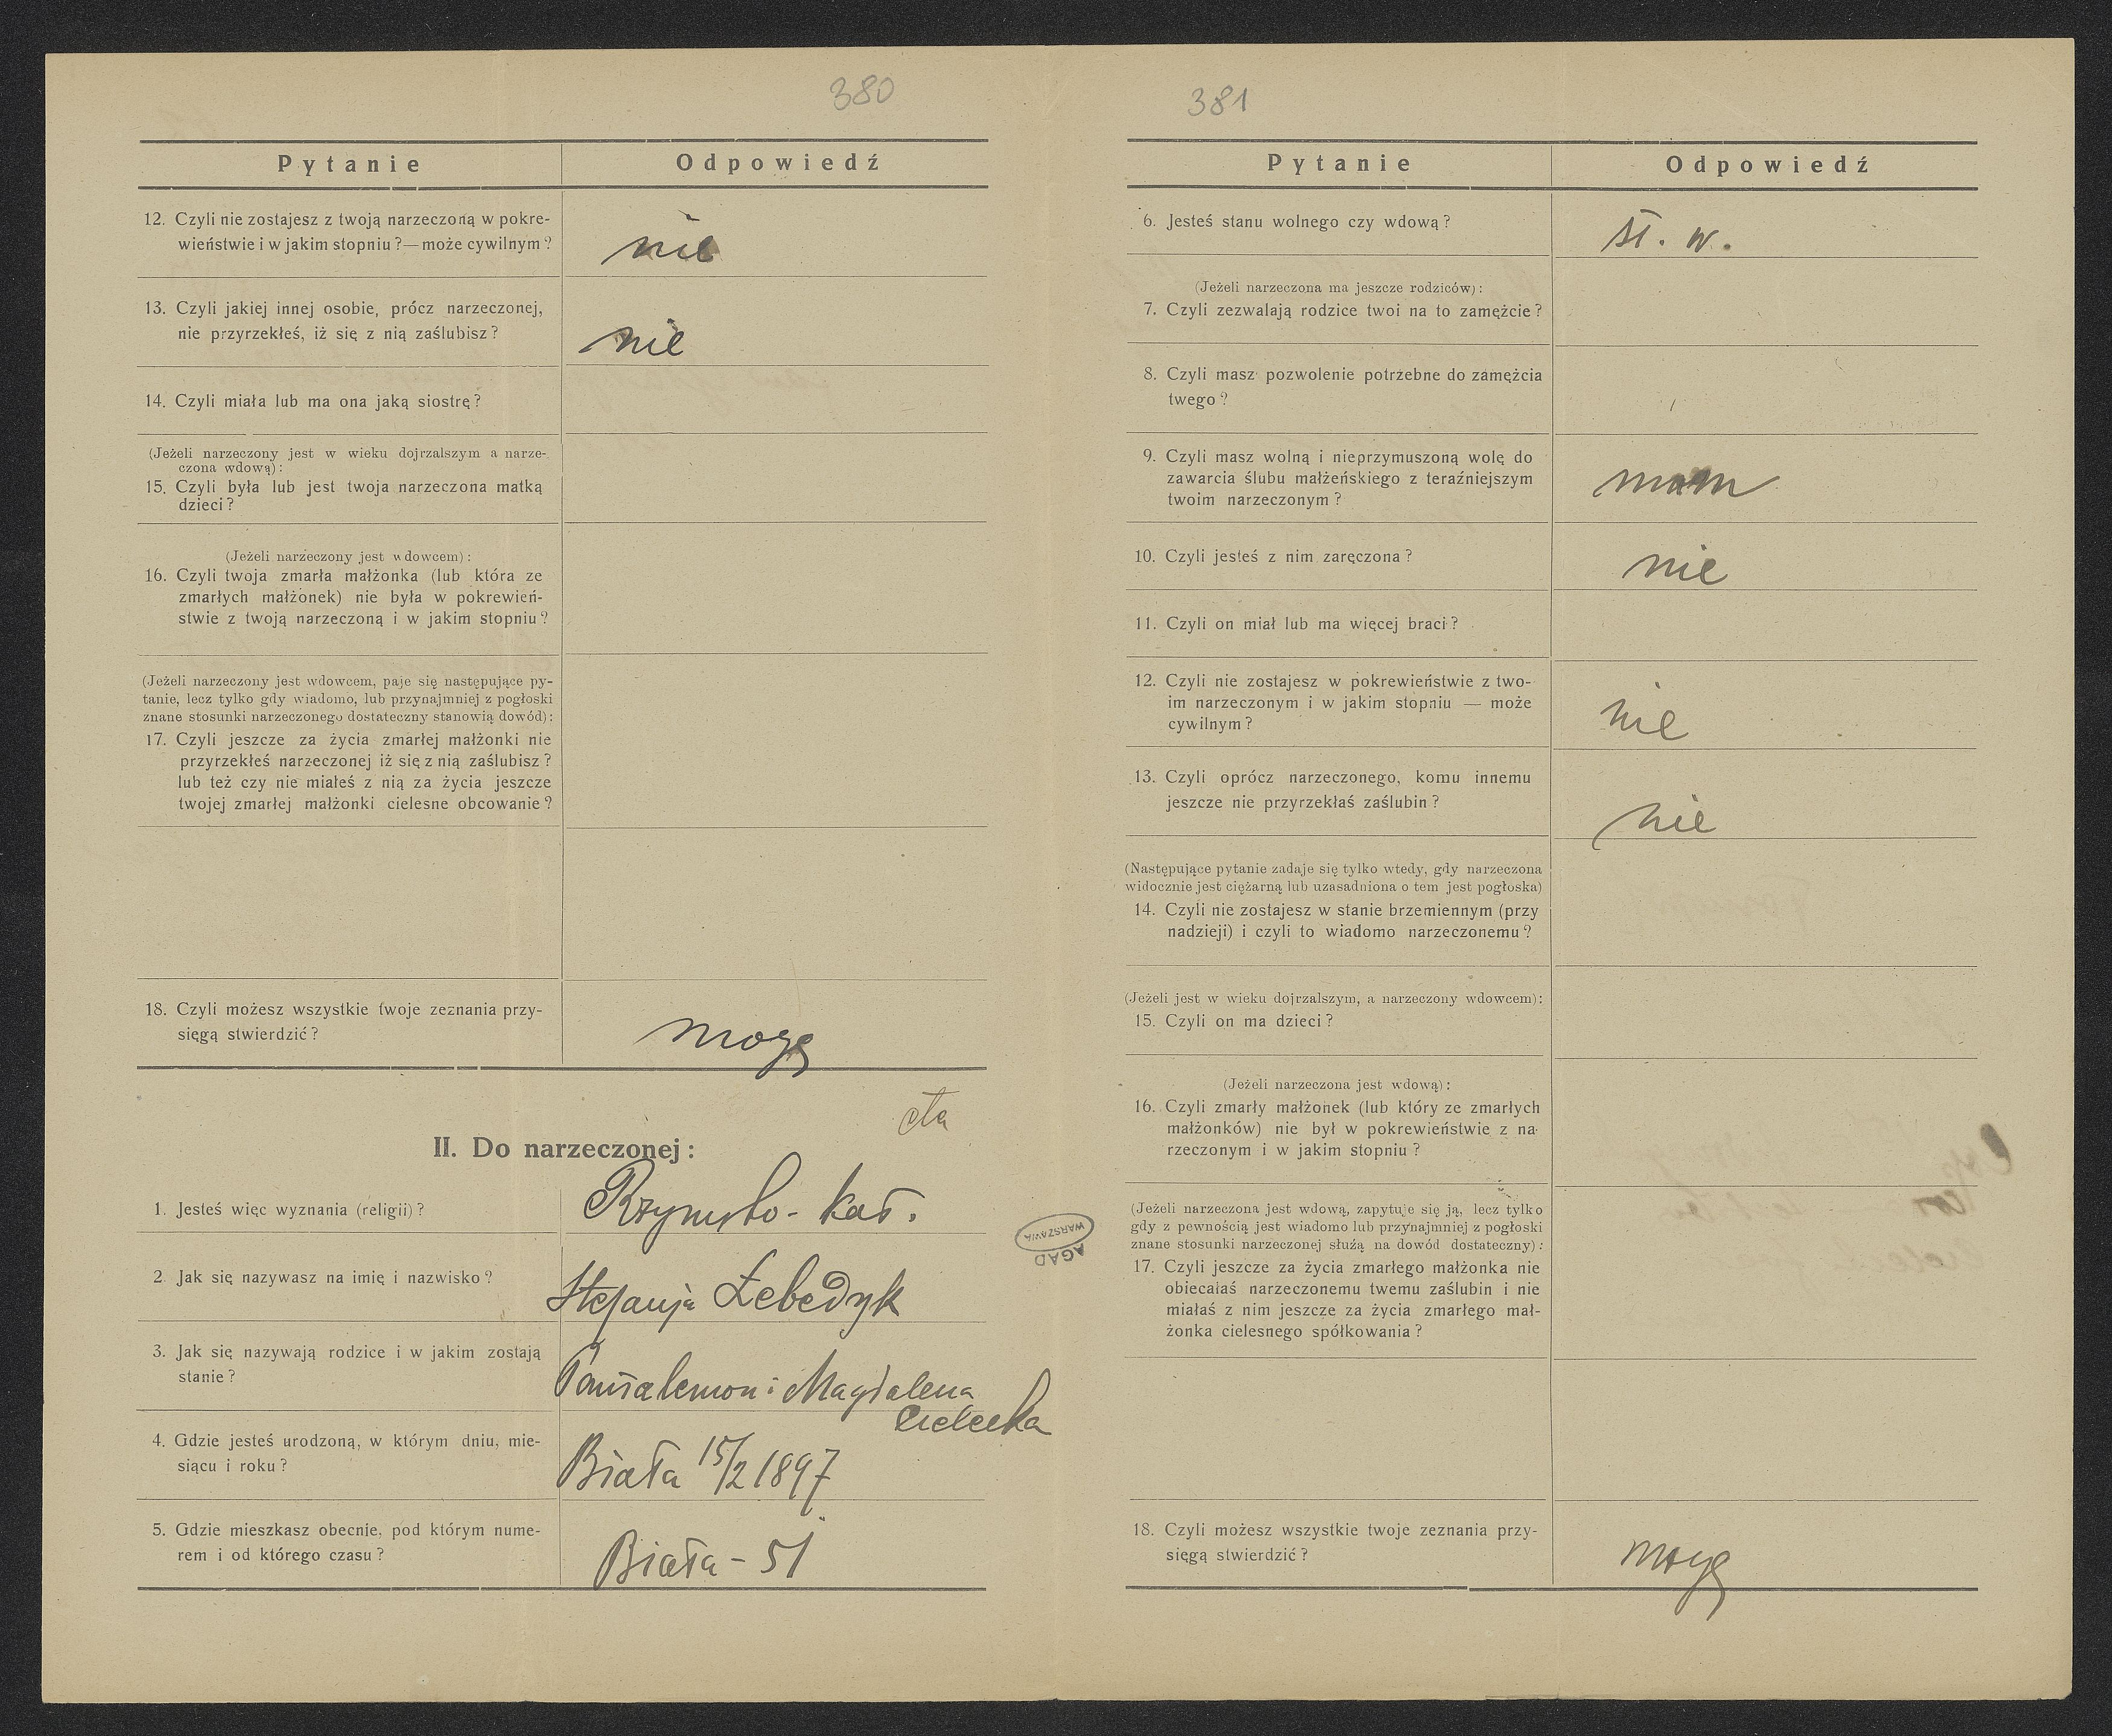 380
Pytanie Odpowiedź
12. Czyli nie zostajesz z twoją narzeczoną w pokre-
wieństwie i w jakim stopniu?—może cywilnym?
nie
13. Czyli jakiej innej osobie, prócz narzeczonej,
nie przyrzekłeś, iż się z nią zaślubisz?
nie
14. Czyli miała lub ma ona jaką siostrę?
(Jeżeli narzeczony jest w wieku dojrzalszym a narze-
czona wdową):
15. Czyli była lub jest twoja narzeczona matką
dzieci?
(Jeżeli narzeczony jest wdowcem):
16. Czyli twoja zmarła małżonka (lub która ze
zmarłych małżonek) nie była w pokrewień-
stwie z twoją narzeczoną i w jakim stopniu?
(Jeżeli narzeczony jest wdowcem, paje się następujące py-
tanie, lecz tylko gdy wiadomo, lub przynajmniej z pogłoski
znane stosunki narzeczonego dostateczny stanowią dowód):
17. Czyli jeszcze za życia zmarłej małżonki nie
przyrzekłeś narzeczonej iż się z nią zaślubisz?
lub też czy nie miałeś z nią za życia jeszcze
twojej zmarłej małżonki cielesne obcowanie?
18. Czyli możesz wszystkie twoje zeznania przy-
sięgą stwierdzić?
mogę
II. Do narzeczonej:
1. Jesteś więc wyznania (religii)?
Rzymsko-kat.
2. Jak się nazywasz na imię i nazwisko?
Stefanja Łebedyk
3. Jak się nazywają rodzice i w jakim zostają
stanie?
i Magdalena
4. Gdzie jesteś urodzoną, w którym dniu, mie-
siącu i roku?
Biała 15/2 1897
5. Gdzie mieszkasz obecnie, pod którym nume-
rem i od którego czasu?
Biała - 51
AGAD
WARSZAWA
381
Pytanie Odpowiedź
6. Jesteś stanu wolnego czy wdową?
st. w.
(Jeżeli narzeczona ma jeszcze rodziców):
7. Czyli zezwalają rodzice twoi na to zamężcie?
8. Czyli masz pozwolenie potrzebne do zamężcia
twego?
9. Czyli masz wolną i nieprzymuszoną wolę do
zawarcia ślubu małżeńskiego z teraźniejszym
twoim narzeczonym?
mam
10. Czyli jesteś z nim zaręczona?
nie
11. Czyli on miał lub ma więcej braci?
12. Czyli nie zostajesz w pokrewieństwie z two-
im narzeczonym i w jakim stopniu — może
cywilnym?
nie
13. Czyli oprócz narzeczonego, komu innemu
jeszcze nie przyrzekłaś zaślubin?
nie
(Następujące pytanie zadaje się tylko wtedy, gdy narzeczona
widocznie jest ciężarną lub uzasadniona o tem jest pogłoska)
14. Czyli nie zostajesz w stanie brzemiennym (przy
nadzieji) i czyli to wiadomo narzeczonemu?
(Jeżeli jest w wieku dojrzalszym, a narzeczony wdowcem):
15. Czyli on ma dzieci?
(Jeżeli narzeczona jest wdową):
16. Czyli zmarły małżonek (lub który ze zmarłych
małżonków) nie był w pokrewieństwie z na-
rzeczonym i w jakim stopniu?
(Jeżeli narzeczona jest wdową, zapytuje się ją, lecz tylko
gdy z pewnością jest wiadomo lub przynajmniej z pogłoski
znane stosunki narzeczonej służą na dowód dostateczny):
17. Czyli jeszcze za życia zmarłego małżonka nie
obiecałaś narzeczonemu twemu zaślubin i nie
miałaś z nim jeszcze za życia zmarłego mał-
żonka cielesnego spółkowania?
18. Czyli możesz wszystkie twoje zeznania przy-
sięgą stwierdzić?
mogę